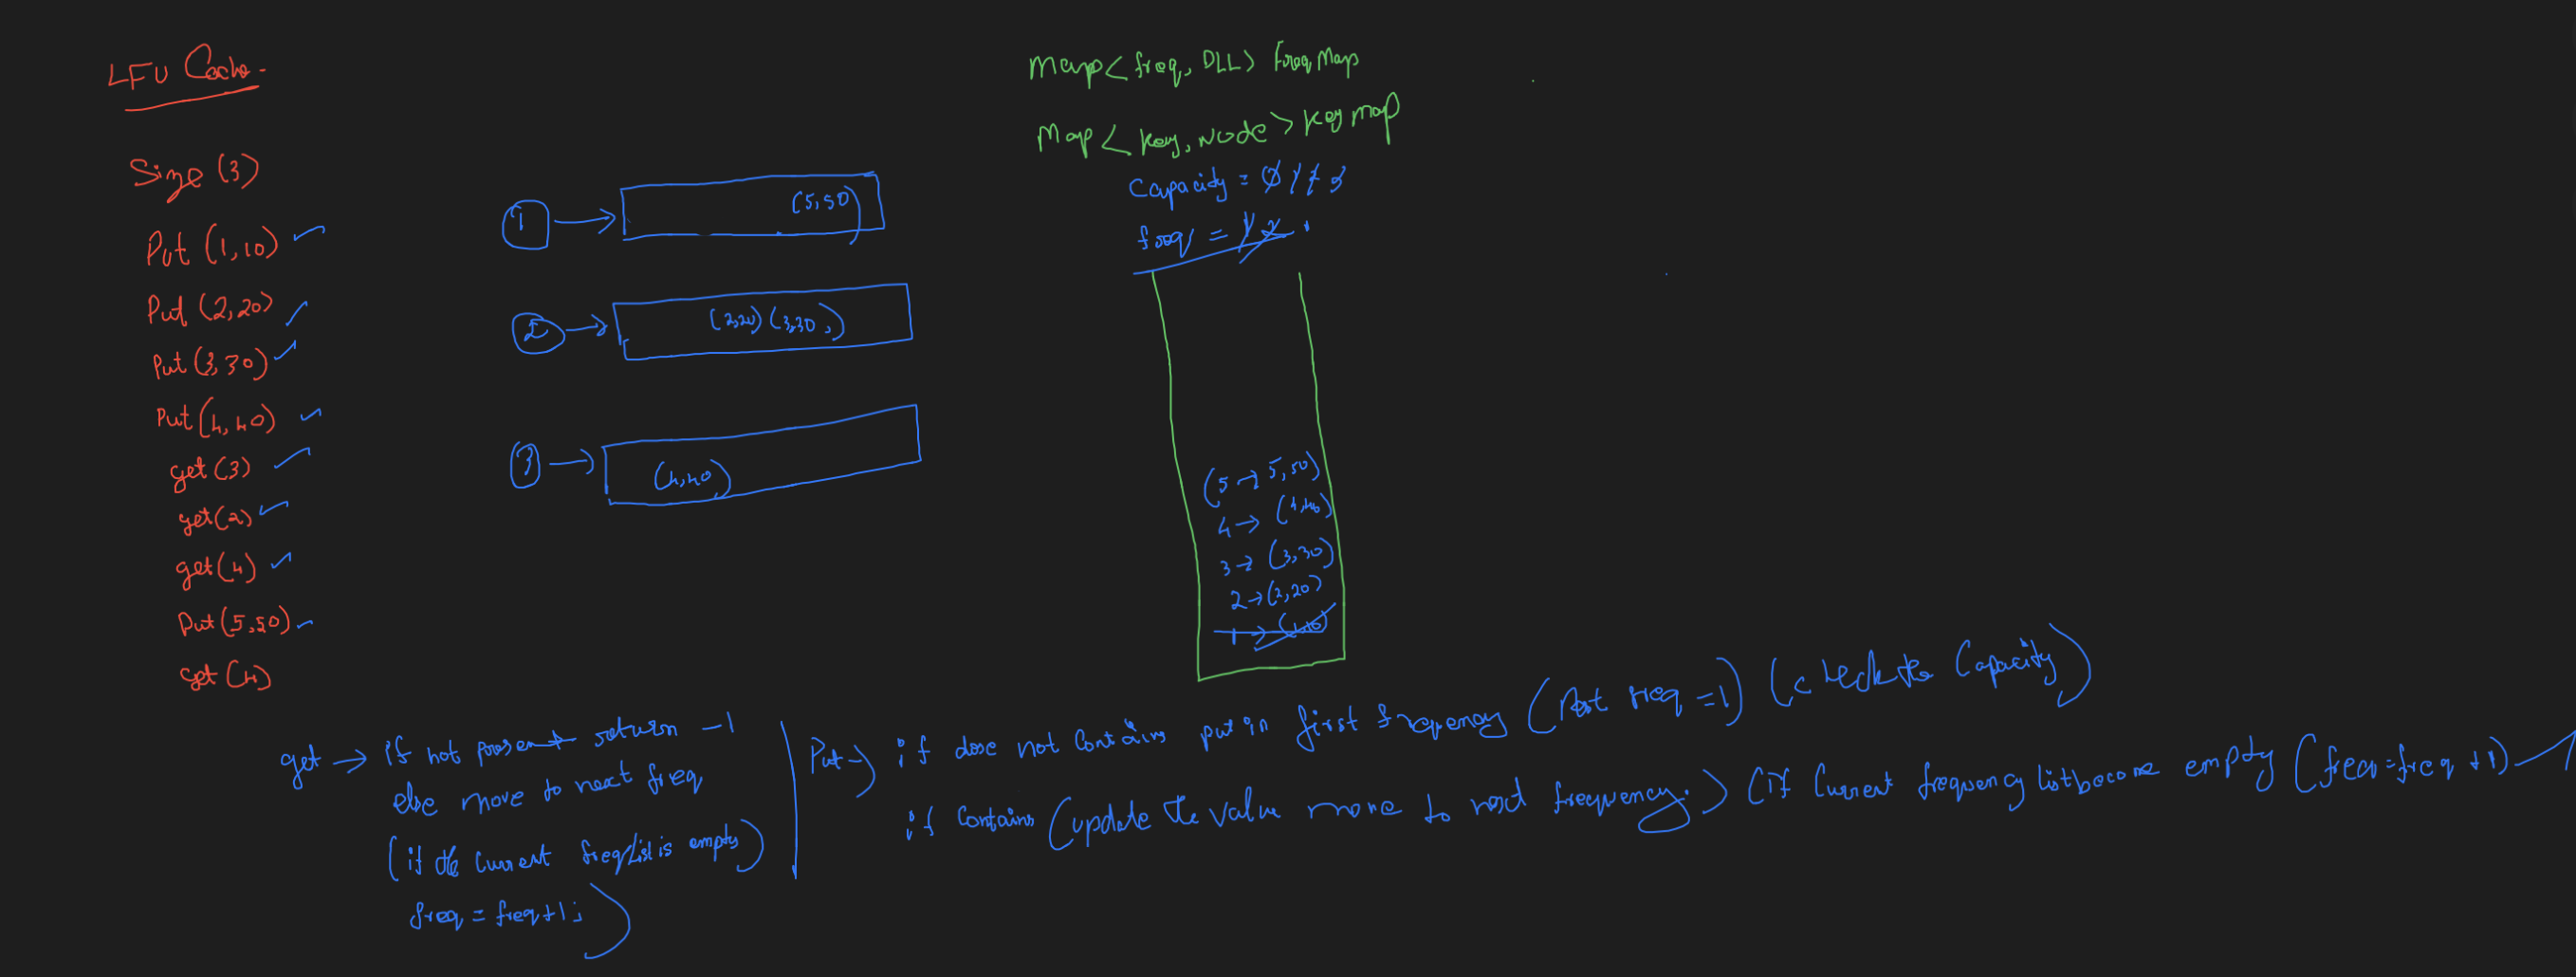 LFU Cache.
Size (3)
Put (1,10)
Put (2,20)
Put (3,30)
Put (4,40)
get (3)
get (2)
get (4)
Put (5,50)
get (4)
1
(5,50)
2
(2,20) (3,30)
3
(4,40)
Map<freq, DLL> FreqMap
Map<key, Node> keymap
Capacity = 0 1 2 3
freq = 1 2 1
(5 → 5,50)
4 → (4,40)
3 → (3,30)
2 → (2,20)
1 → (1,10)
get → if not present return -1
else move to next freq
(if the current freq list is empty)
freq = freq+1;
Put → if dose not contains put in first frequency (freq = 1) (check the Capacity)
if contains (update the value move to next frequency.) (if Current frequency list become empty (freq = freq + 1)